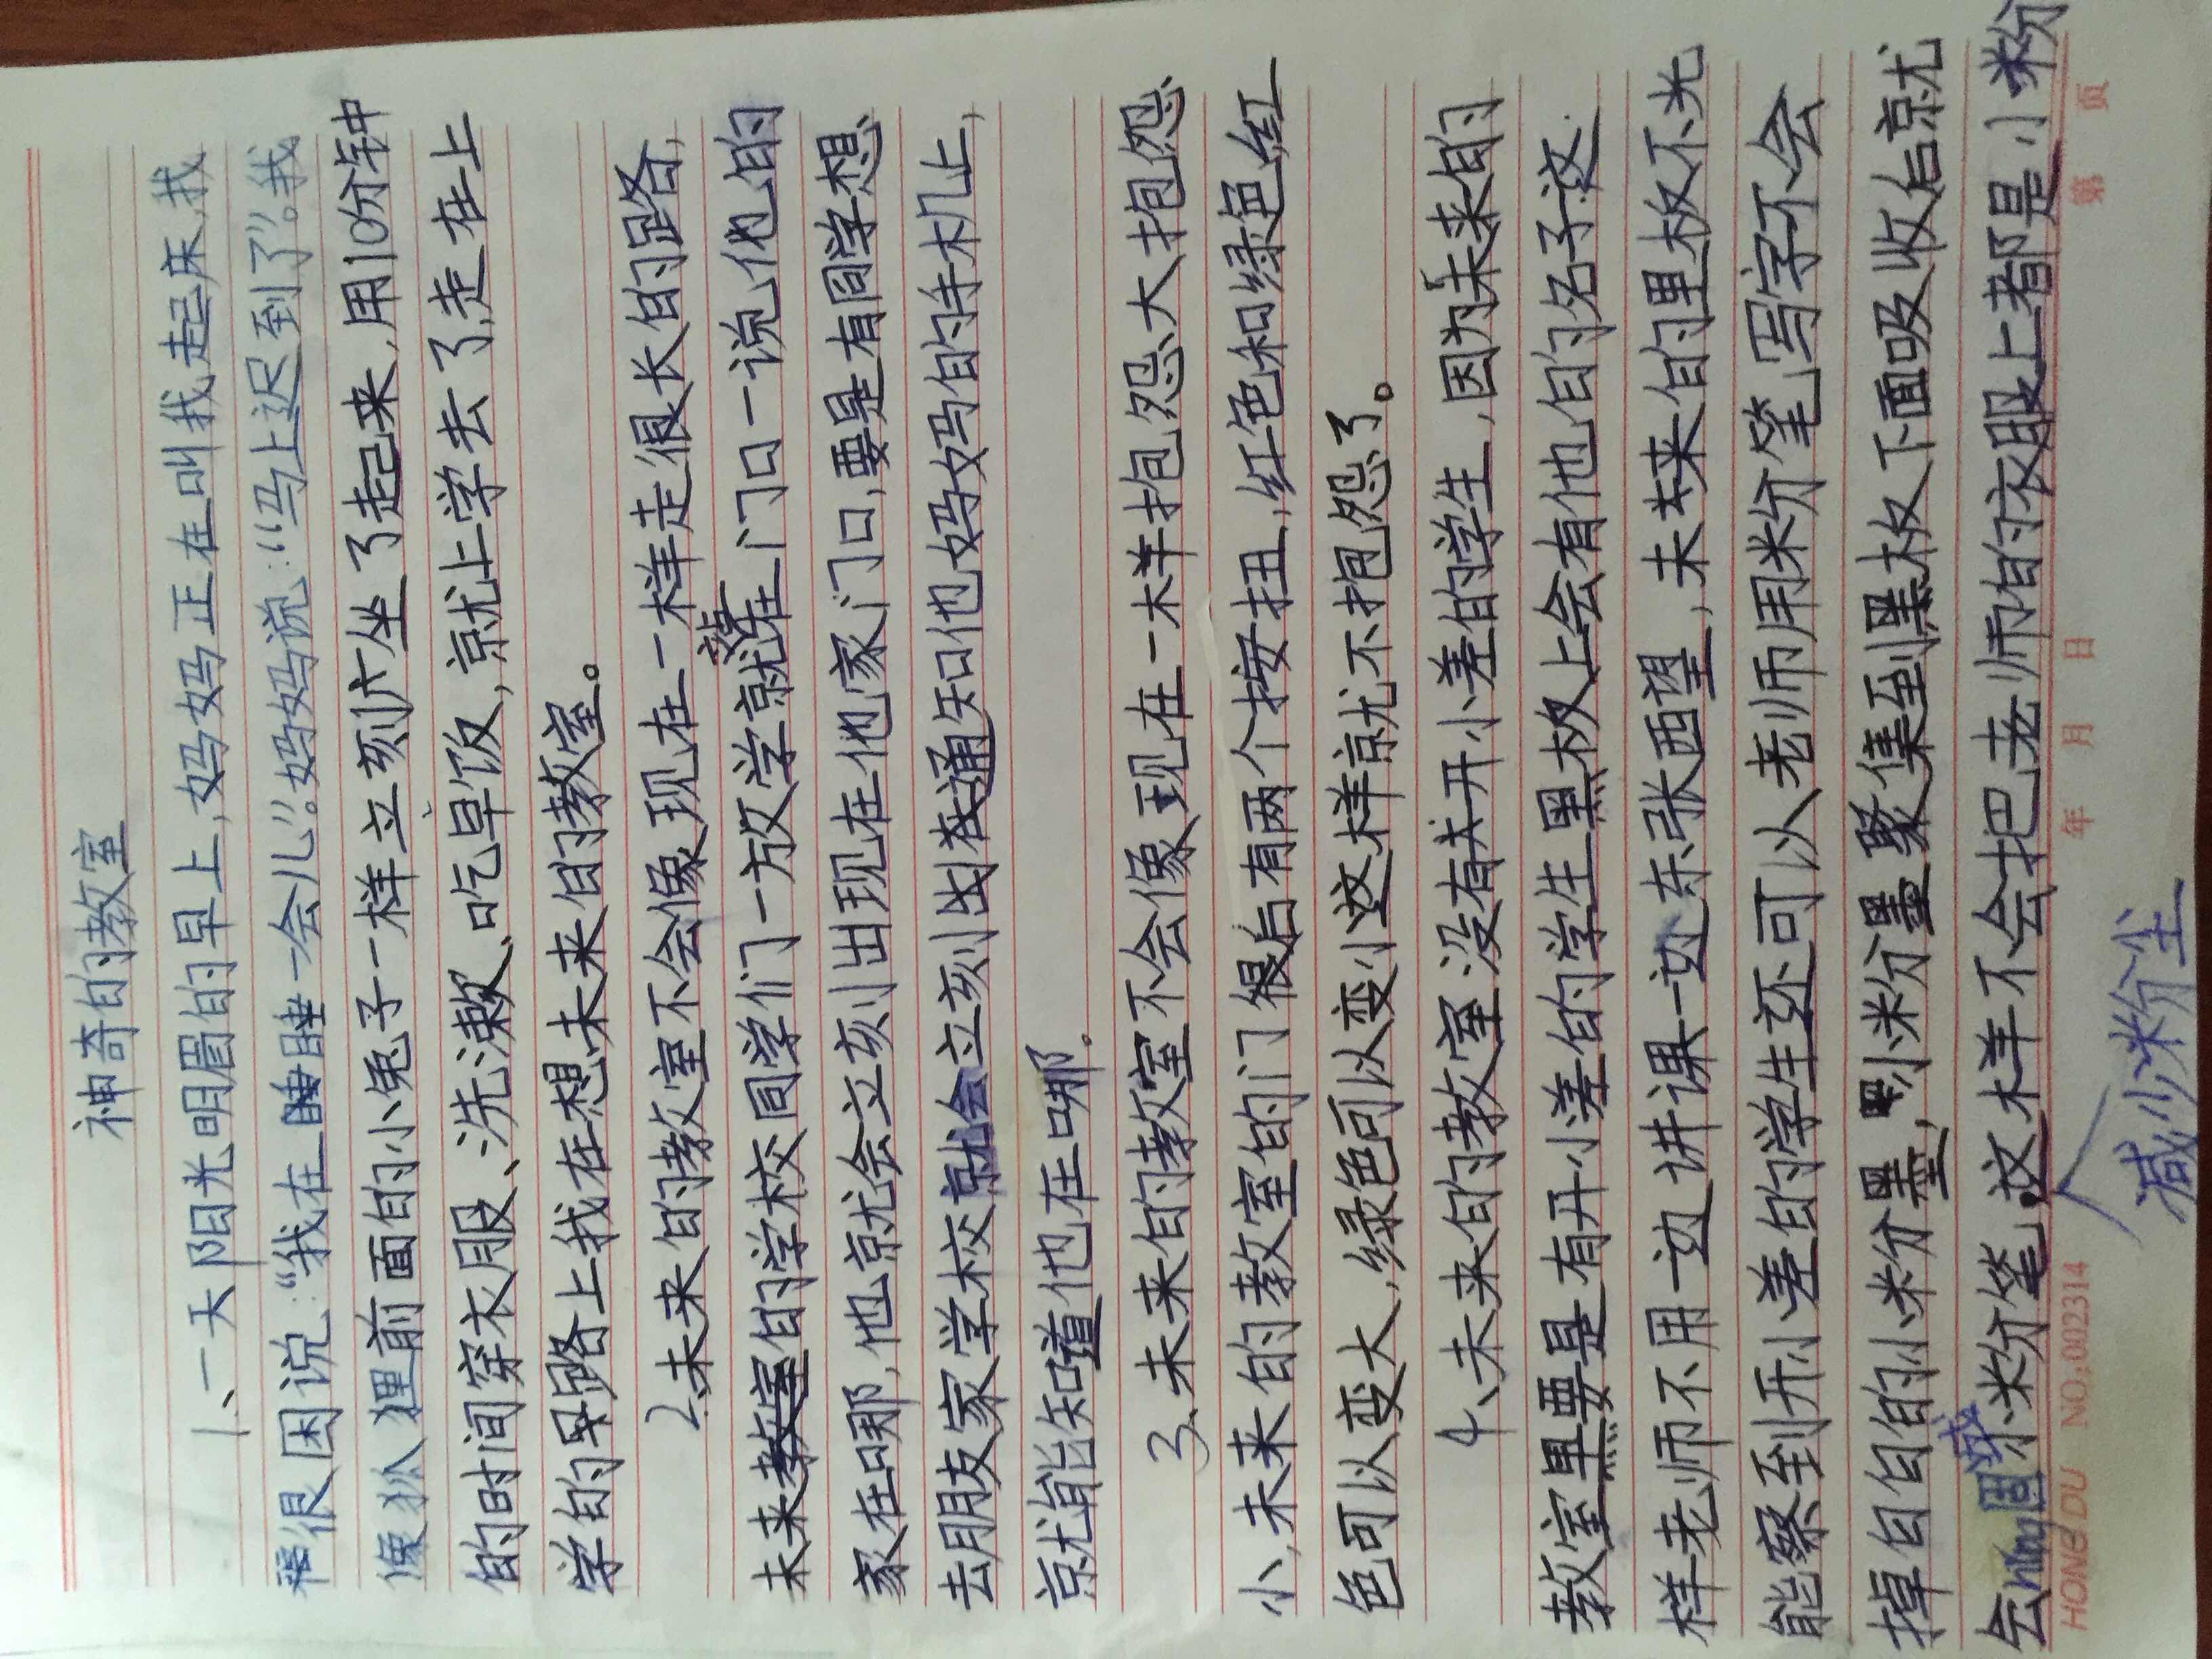 神奇的教室
1、一天阳光明眉的早上,妈妈正在叫我起床,我
很困说:“我在睡睡一会儿”。妈妈说:“马上迟到了”。我
像狐狸前面的小兔子一样立刻坐了起来,用10分钟
的时间穿衣服、洗漱、吃早饭,就上学去了,走在上
学的路上我在想未来的教室。
2、未来的教室不会像现在一样走很长的路,
未来的学校同学们一放学就站在门口一说他的
家在哪,他就会立刻出现在他家门口,要是有同学想
去朋友家学校就会立刻通知他妈妈的手机上,
就能知道他在哪。
3、未来的教室不会像现在一样抱怨大抱怨
小,未来的教室的门后有两个按扭,红色和绿色,红
色可以变大,绿色可以变小这样就不抱怨了。
4、未来的教室没有开小差的学生,因为未来的
教室要是有开小差的学生黑板上会有他的名子这
样老师不用一边讲课一边东张西望,未来的黑板不光
能察到开小差的学生还可以老师用粉笔写字不会
掉白白的小粉墨,小粉墨聚集到黑板下面吸收后就
会凝小粉笔,这样不会把老师的衣服上都是小粉
减少粉尘
HONG DU NO.002314 年 月 日 第 页